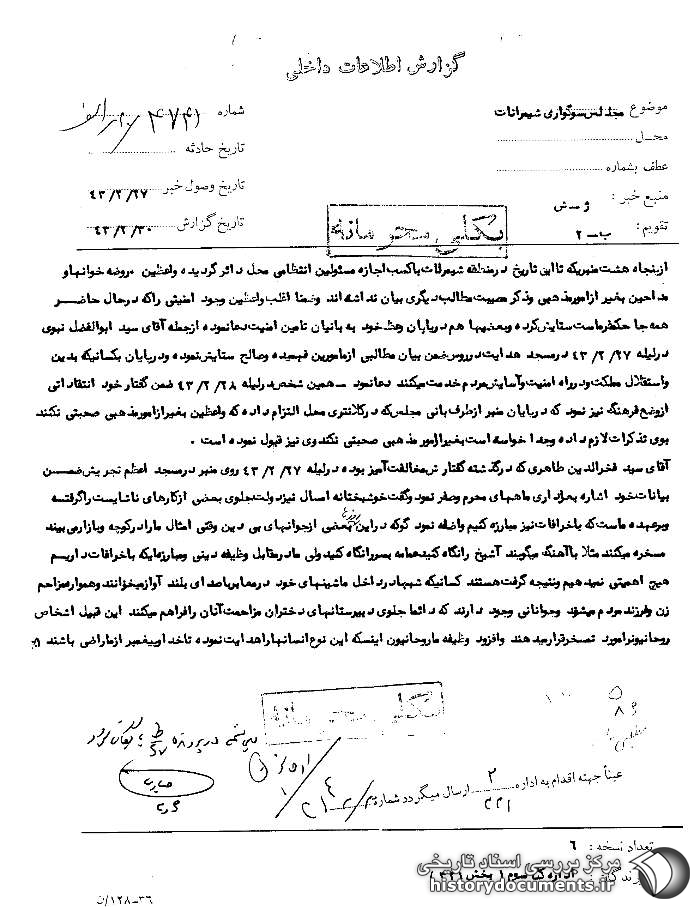 گزارش اطلاعات داخلی
موضوع مجلس سوگواری شمیرانات
شماره ۴۷۴۱
محل
تاریخ حادثه
عطف بشماره
منبع خبر :
تاریخ وصول خبر ۴۳/۲/۲۷
تقویم : ب-۲
تاریخ گزارش ۴۳/۲/۳۰
بکلی محرمانه
ازپنجاه هشت منبریکه تااین تاریخ درمنطقه شمیرانات باکسب اجازه مسئولین انتظامی محل دائر گردیده واعظین روضه خوانها و
مداحین بغیر ازامورمذهبی وذکر مصیبت مطالب دیگری بیان نداشته اند وضمنا اغلب واعظین وجود امنیتی راکه درحال حاضر
همه جا حکمفرماست ستایش کرده وبعضیها هم درپایان وعظ خود به بانیان تامین امنیت دعانموده ازجمله آقای سید ابوالفضل نبوی
درلیله ۴۳/۲/۲۷ درمسجد هدایت دروس ضمن بیان مطالبی ازمامورین فهمیده وصالح ستایش نموده ودرپایان بکسانیکه بدین
واستقلال مملکت ودرراه امنیت وآسایش مردم خدمت میکنند دعانمود ـ همین شخص درلیله ۴۳/۲/۲۸ ضمن گفتار خود انتقاداتی
ازوضع فرهنگ نیز نمود که درپایان منبر ازطرف بانی مجلس که درکلانتری محل التزام داده که واعظین بغیرازامورمذهبی صحبتی نکنند
بوی تذکرات لازم داده وجدا خواسته است بغیرازامور مذهبی صحبتی نکند وی نیز قبول نموده است .
آقای سید فخرالدین طاهری که درگذشته گفتارش مخالفت آمیز بوده درلیله ۴۳/۲/۲۷ روی منبر درمسجد اعظم تجریش ضمن
بیانات خود اشاره بعزاداری ماههای محرم وصفر نمود وگفت خوشبختانه امسال نیزدولت جلوی بعضی ازکارهای ناشایست راگرفته
وبرعهده ماست که باخرافات نیز مبارزه کنیم واضافه نمود گوکه دراین روزها بعضی ازجوانهای بی دین وقتی امثال مارادرکوچه وبازارمی بینند
مسخره میکنند مثلا باآهنگ میگویند آشیخ رانگاه کنید عمامه بسررانگاه کنید ولی مادرمقابل وظیفه دینی ومبارزه ایکه باخرافات داریم
هیچ اهمیتی نمیدهیم ونتیجه گرفت هستند کسانیکه شبها درداخل ماشینهای خود درمعابرباصدای بلند آوازمیخوانند وهموارمزاحم
زن وفرزند مردم میشوند وجوانانی وجود دارند که دائما جلوی دبیرستانهای دختران مزاحمت آنان رافراهم میکنند این قبیل اشخاص
روحانیونرامورد تمسخرقرارمیدهند وافزود وظیفه ماروحانیون اینسکه این نوع انسانهاراهدایت نموده تاخداوپیغمبر ازماراضی باشند
بکلی محرمانه
عیناً جهته اقدام به اداره ۳/۳۲۱ ارسال میگردد شماره
تعداد نسخه : ۶
گیرندگان : اداره کل سوم (بخش ۳۲۱)
۱۲۸-۳۶/ن
مرکز بررسی اسناد تاریخی
historydocuments.ir